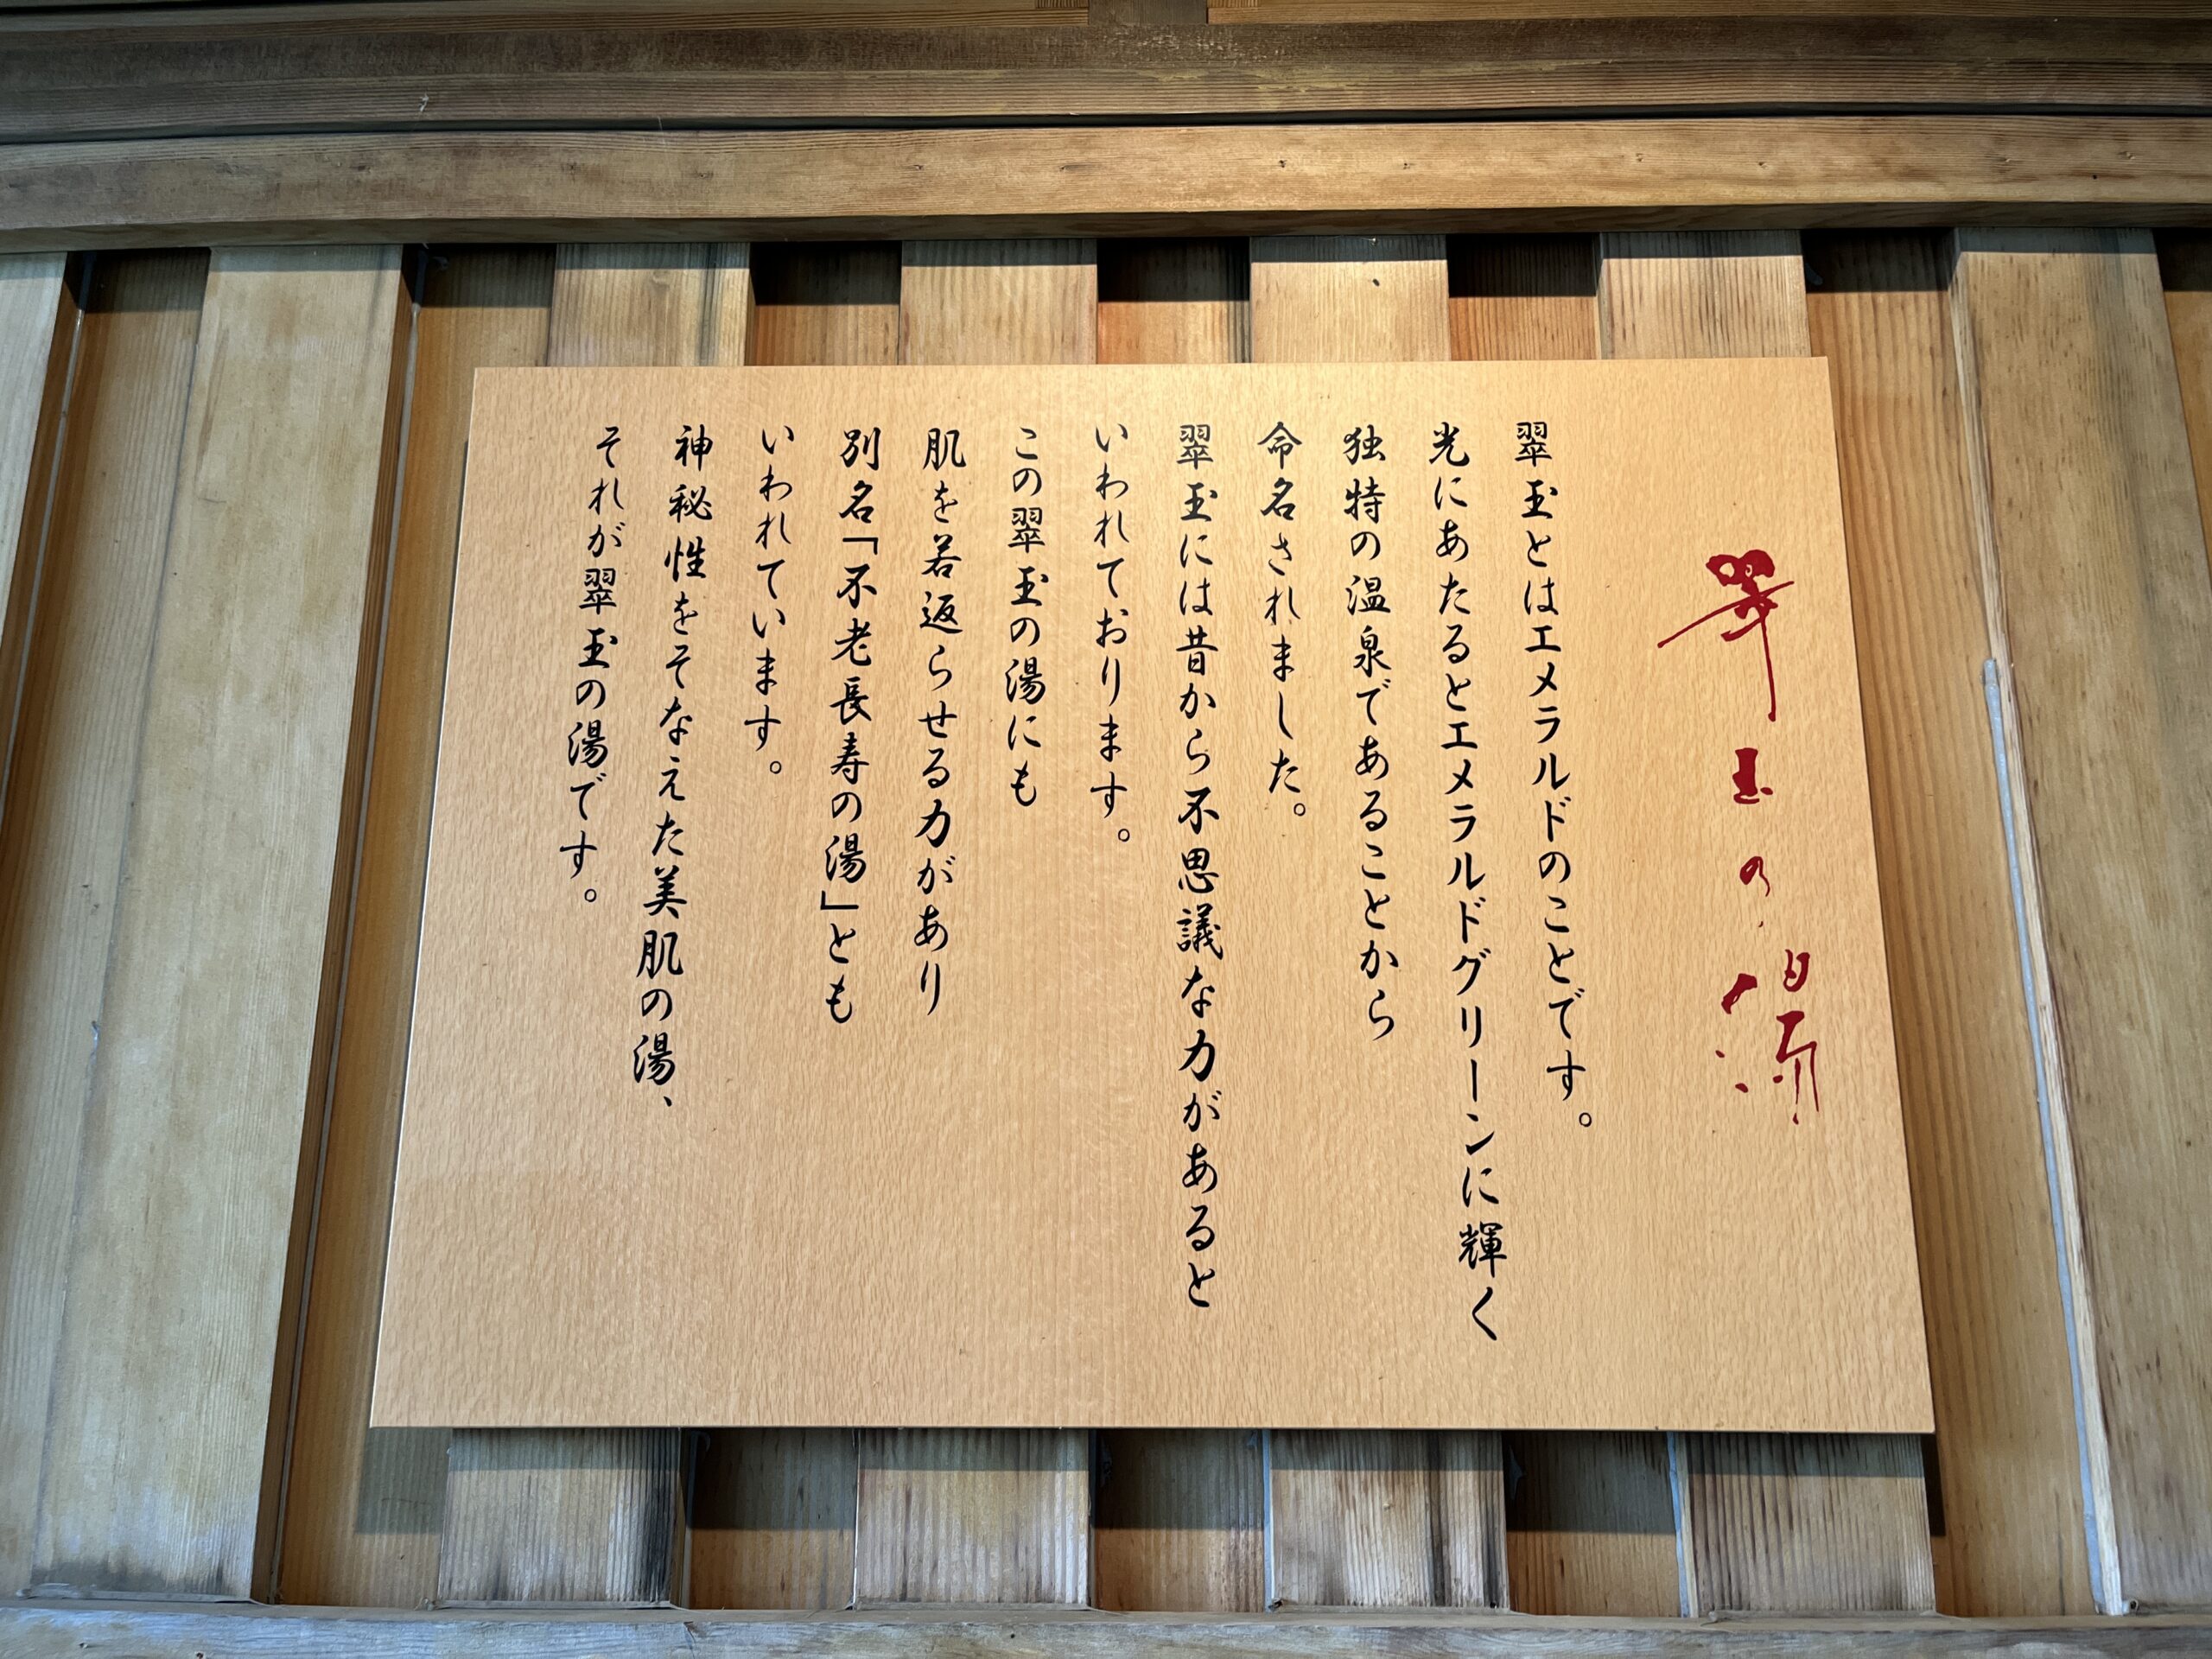 翠玉の湯
翠玉とはエメラルドのことです。
光にあたるとエメラルドグリーンに輝く
独特の温泉であることから
命名されました。
翠玉には昔から不思議な力があると
いわれております。
この翠玉の湯にも
肌を若返らせる力があり
別名「不老長寿の湯」とも
いわれています。
神秘性をそなえた美肌の湯、
それが翠玉の湯です。